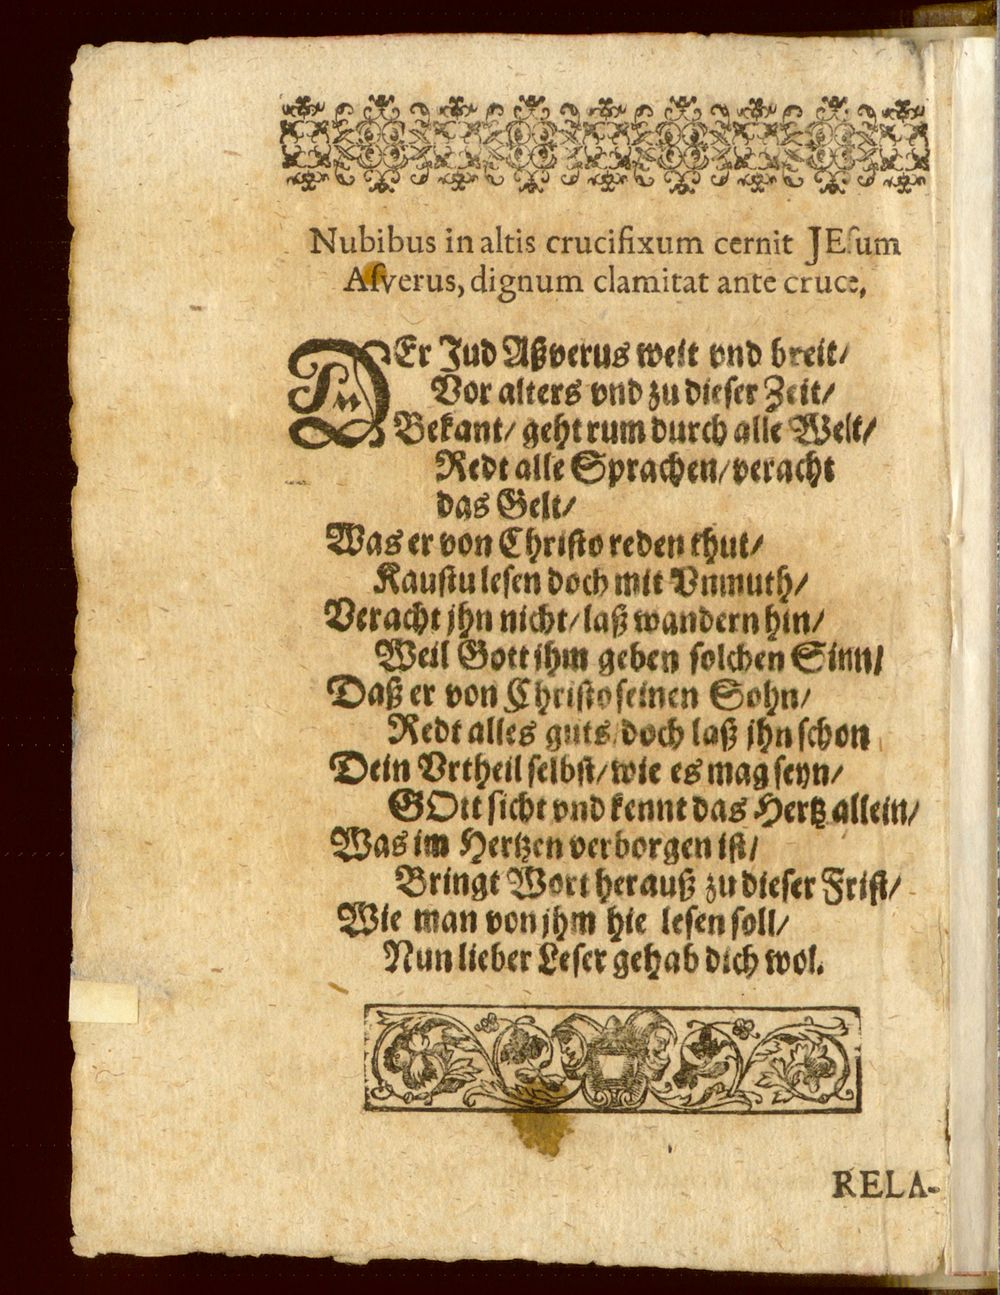 Nubibus in altis crucifixum cernit JEſum
Aſverus, dignum clamitat ante cruce,
DEr Jud Aßverus weit vnd breit/
Vor alters vnd zu dieſer Zeit/
Bekant/ geht rum durch alle Welt/
Redt alle Sprachen/ veracht
das Gelt/
Was er von Chriſto reden thut/
Kauſtu leſen doch mit Vnmuth/
Veracht jhn nicht/ laß wandern hin/
Weil Gott jhm geben ſolchen Sinn/
Daß er von Chriſto ſeinen Sohn/
Redt alles guts/ doch laß jhn ſchon
Dein Vrtheil ſelbſt/ wie es mag ſeyn/
GOtt ſicht vnd kennt das Hertz allein/
Was im Hertzen verborgen iſt/
Bringt Wort herauß zu dieſer Friſt/
Wie man von jhm hie leſen ſoll/
Nun lieber Leſer gehab dich wol.
RELA-